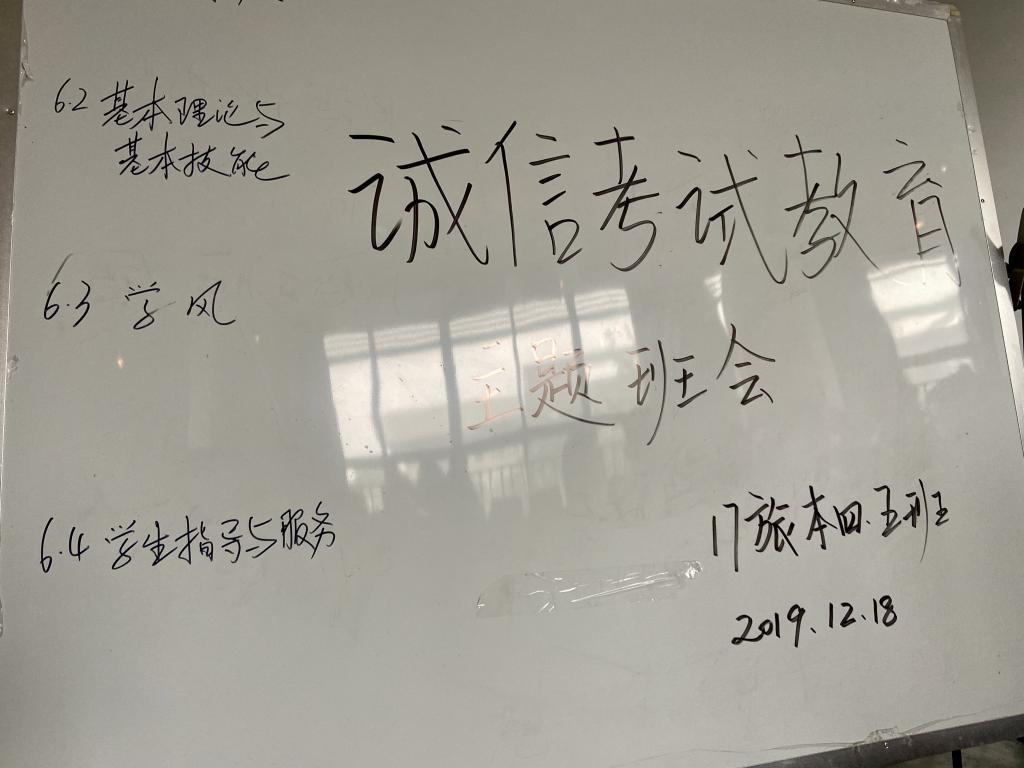 6.2 基本理论与
基本技能
6.3 学风
6.4 学生指导与服务
诚信考试教育
主题班会
17旅本四.五班
2019.12.18